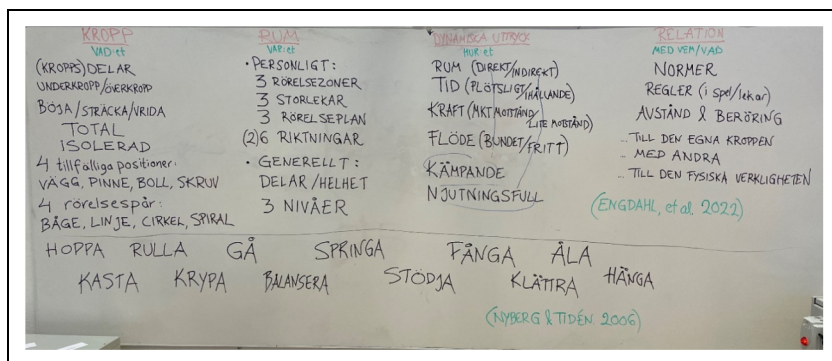 KROPP
VAD·et
(KROPPS)DELAR
UNDERKROPP/ÖVERKROPP
BÖJA/STRÄCKA/VRIDA
TOTAL
ISOLERAD
4 tillfälliga positioner:
VÄGG, PINNE, BOLL, SKRUV
4 rörelsespår:
BÅGE, LINJE, CIRKEL, SPIRAL
RUM
VAR·et
• PERSONLIGT:
3 RÖRELSEZONER
3 STORLEKAR
3 RÖRELSEPLAN
(2)6 RIKTNINGAR
• GENERELLT:
DELAR/HELHET
3 NIVÅER
DYNAMISKA UTTRYCK
HUR·et
RUM (DIREKT/INDIREKT)
TID (PLÖTSLIGT/IHÅLLANDE)
KRAFT (MKT MOTSTÅND/
LITE MOTSTÅND)
FLÖDE (BUNDET/FRITT)
KÄMPANDE
NJUTNINGSFULL
RELATION
MED VEM/VAD
NORMER
REGLER (i spel/lekar)
AVSTÅND & BERÖRING
...TILL DEN EGNA KROPPEN
... MED ANDRA
...TILL DEN FYSISKA VERKLIGHETEN
(ENGDAHL, et al. 2022)
HOPPA RULLA GÅ SPRINGA FÅNGA ÅLA
KASTA KRYPA BALANSERA STÖDJA KLÄTTRA HÄNGA
(NYBERG & TIDÉN 2006)